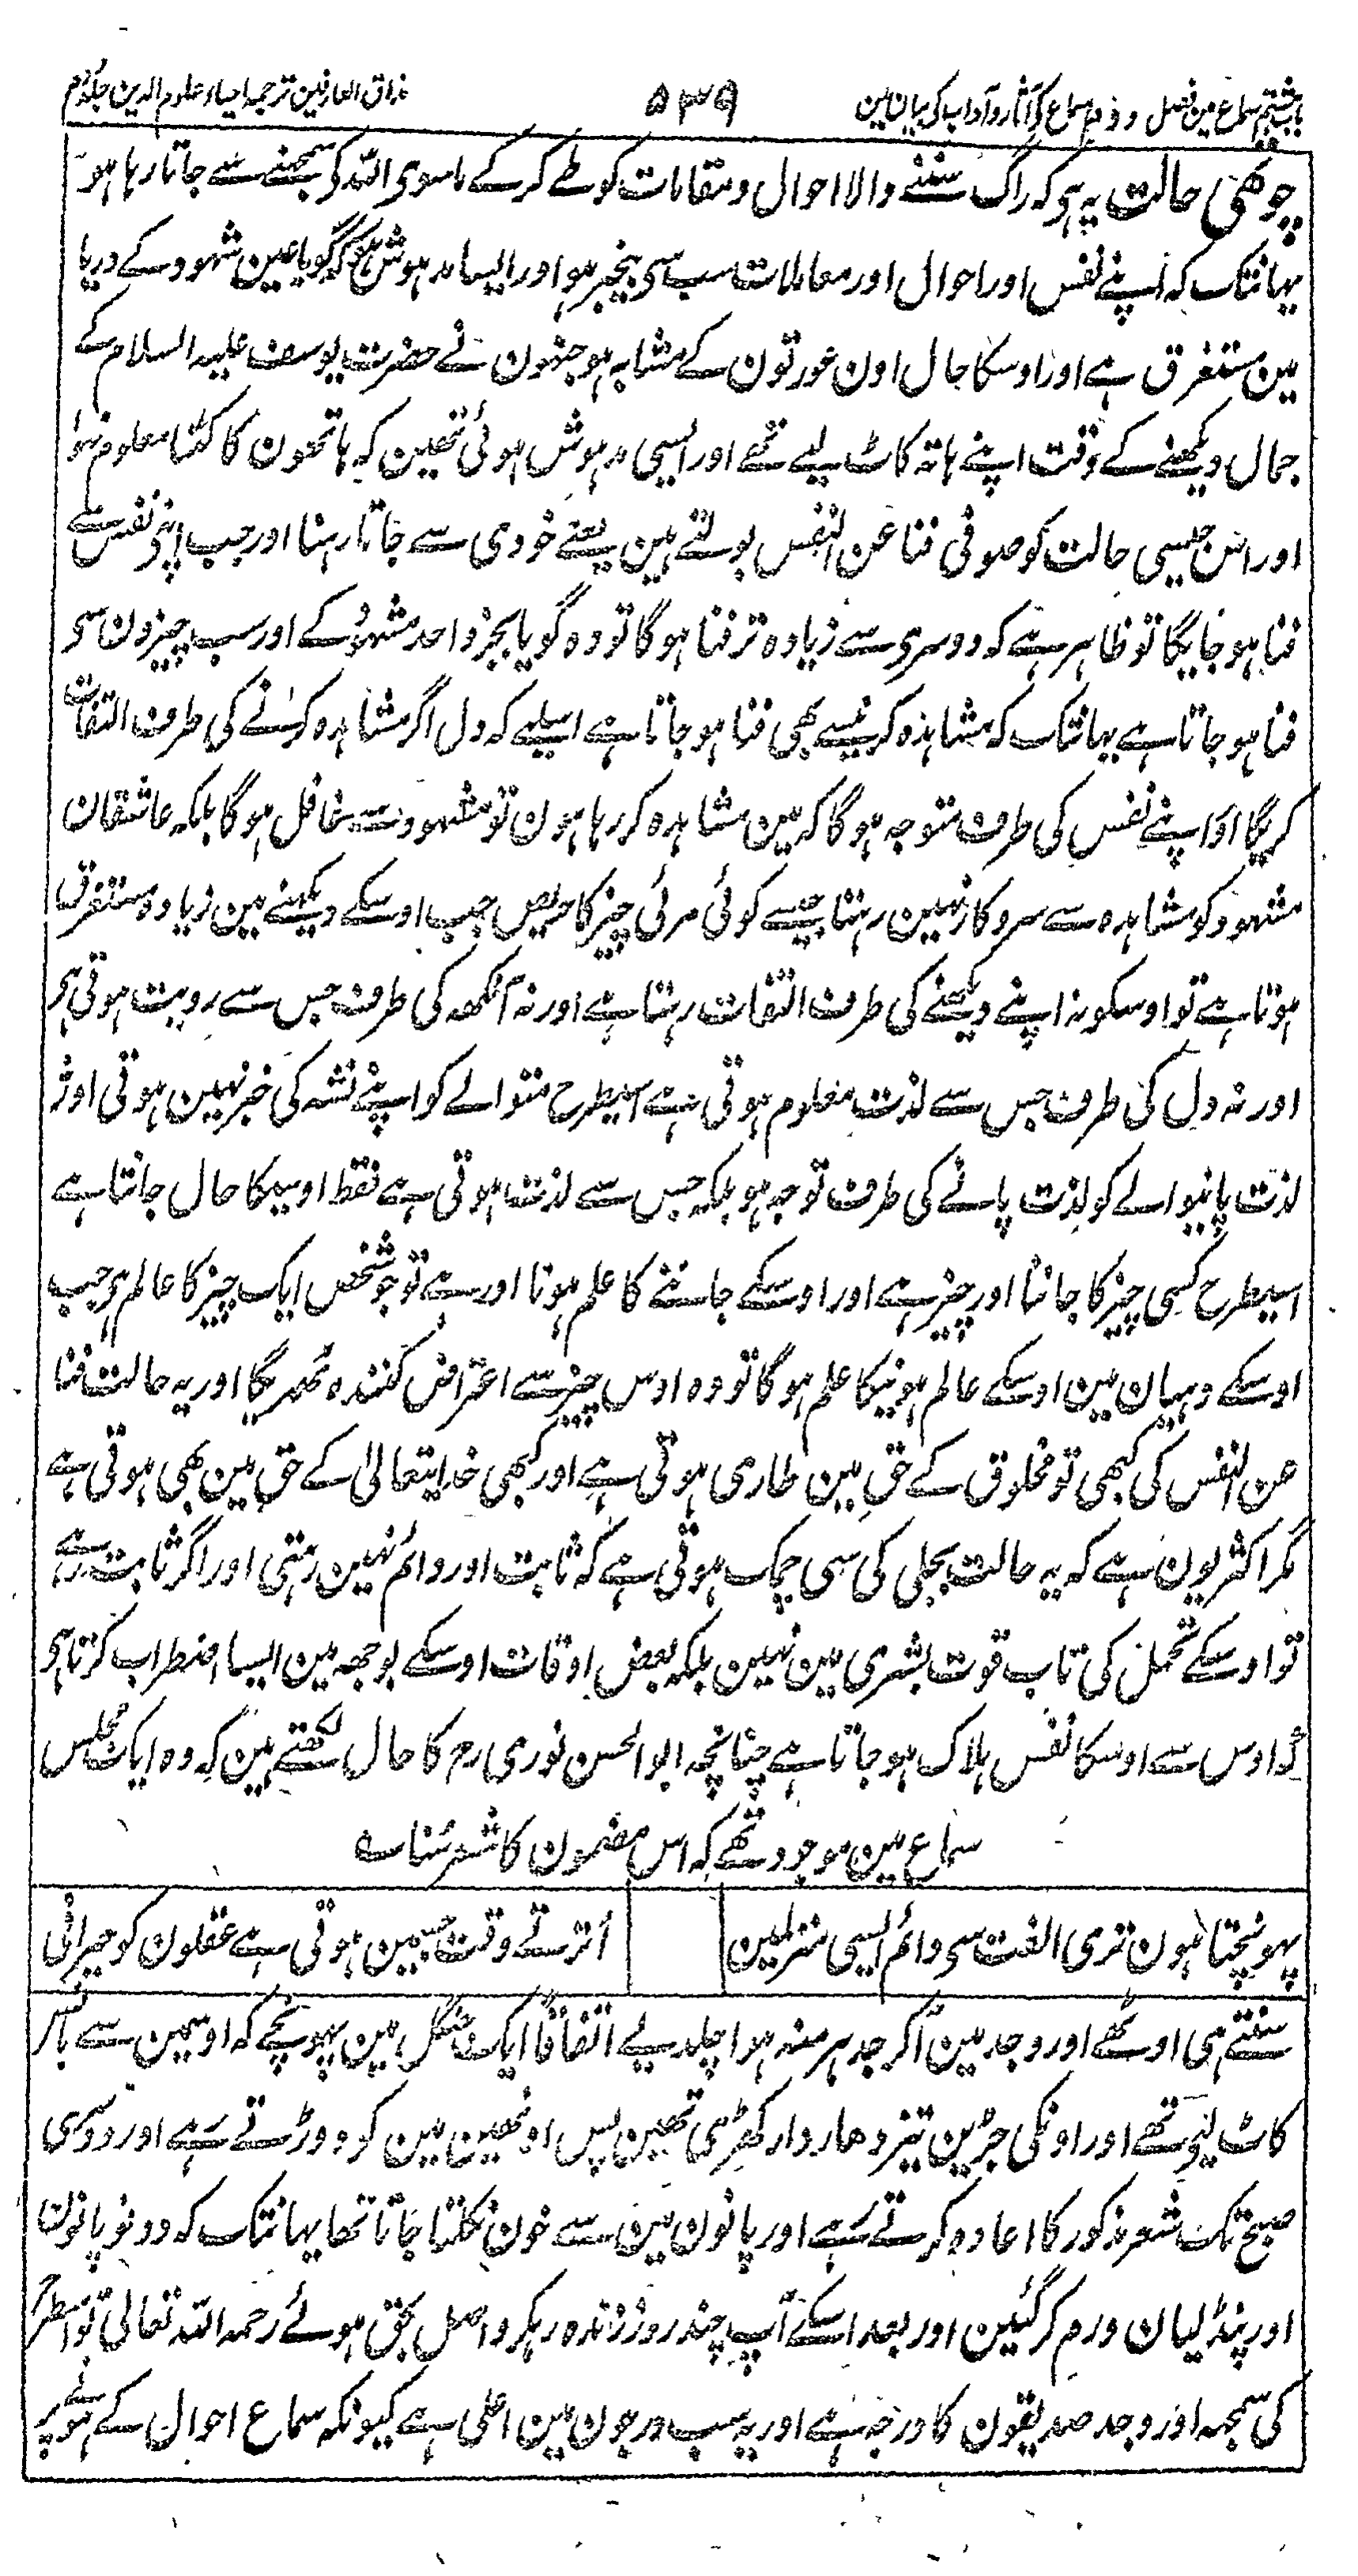 باب ہشتم سماع مین فصل دوم سماع کے آثار و آداب کی بیان مین
۵۳۹
مذاق العارفین ترجمہ احیاء علوم الدین جلد دوم
چوتھی حالت یہ ہی کہ راگ سننے والا احوال و مقامات کو طے کرکے ماسوی اللہ کو سمجھنے سے جاتا رہا ہو
یہانتک کہ اپنے نفس اور احوال اور معاملات سب سی بیخبر ہو اور ایسا مدہوش ہو کہ گویا عین شہود کے دریا
مین مستغرق ہے اور اوسکا حال اون عورتون کے مشابہ ہو جنھون نے حضرت یوسف علیہ السلام کے
جمال دیکھنے کے وقت اپنے ہاتھ کاٹ لیے تھے اور ایسی مدہوش ہوئی تھین کہ ہاتھون کا کٹنا معلوم نہوا
اور اس جیسی حالت کو صوفی فنا عن النفس بولتے ہین یعنے خودی سے جاتا رہنا اور جب اپنی نفس سے
فنا ہو جایگا تو ظاہر ہے کہ دوسری سے زیادہ تر فنا ہوگا تو وہ گویا بجز واحد مشہود کے اور سب چیزون سی
فنا ہو جاتا ہے یہانتک کہ مشاہدہ کرنیسے بھی فنا ہو جاتا ہے اسلیے کہ دل اگر مشاہدہ کرنے کی طرف التفات
کریگا اور اپنے نفس کی طرف متوجہ ہوگا کہ مین مشاہدہ کر رہا ہون تو مشہود سے غافل ہوگا بلکہ عاشقان
مشہود کو مشاہدہ سے سروکار نہین رہتا جیسے کوئی مرئی چیز کا حریص جب اوسکے دیکھنے مین زیادہ مستغرق
ہوتا ہے تو اوسکو نہ اپنے دیکھنے کی طرف التفات رہتا ہے اور نہ آنکھہ کی طرف جس سے رویت ہوتی ہی
اور نہ دل کی طرف جس سے لذت معلوم ہوتی ہے اسیطرح متوالے کو اپنے نشہ کی خبر نہین ہوتی اور نہ
لذت پانیوالے کو لذت پانے کی طرف توجہ ہو بلکہ جس سے لذت ہوتی ہے فقط اوسیکا حال جانتا ہے
اسیطرح کسی چیز کا جاننا اور چیز ہے اور اوسکے جاننے کا علم ہونا اور ہے تو جو شخص ایک چیز کا عالم ہی جب
اوسکے دھیان مین اوسکے عالم ہونیکا علم ہوگا تو وہ اوس چیز سے اعتراض کنندہ ٹھہریگا اور یہ حالت فنا
عن النفس کی کبھی تو مخلوق کے حق مین طاری ہوتی ہے اور کبھی خدایتعالیٰ کے حق مین بھی ہوتی ہے
مگر اکثر یون ہے کہ یہ حالت بجلی کی سی چمک ہوتی ہے کہ ثابت اور دائم نہین رہتی اور اگر ثابت رہے
تو اوسکے تحمل کی تاب قوت بشری مین نہین بلکہ بعض اوقات اوسکے بوجھہ مین ایسا اضطراب کرتا ہی
کہ اوس سے اوسکا نفس ہلاک ہو جاتا ہے چنانچہ ابوالحسن نوری رح کا حال لکھتے ہین کہ وہ ایک مجلس
سماع مین موجود تھے کہ اس مضمون کا شعر سُنا ؎
پہونچتا ہون تری الفت سی دائم ایسی منزلمین
اُترتے وقت جسمین ہوتی ہے عقلون کو حیرانی
سنتے ہی اوٹھے اور وجد مین آکر جدہر منہ ہوا چلدیے اتفاقاً ایک جنگل مین پہونچے کہ اوسمین سے بانس
کاٹ لیے تھے اور اونکی جڑین تیز دھاردار کھڑی تھین پس اونھین مین کو دوڑتے رہے اور دوسری
صبح تک شعر مذکور کا اعادہ کرتے رہے اور پانون مین سے خون نکلتا جاتا تھا یہانتک کہ دونو پانون
اور پنڈلیان ورم کر گئین اور بعد اسکے آپ چند روز زندہ رہکر واصل بحق ہوئے رحمہ اللہ تعالیٰ تو اسطرح
کی سمجھہ اور وجد صدیقون کا درجہ ہے اور یہ سب درجون مین اعلی ہے کیونکہ سماع احوال کے ہوتے پر